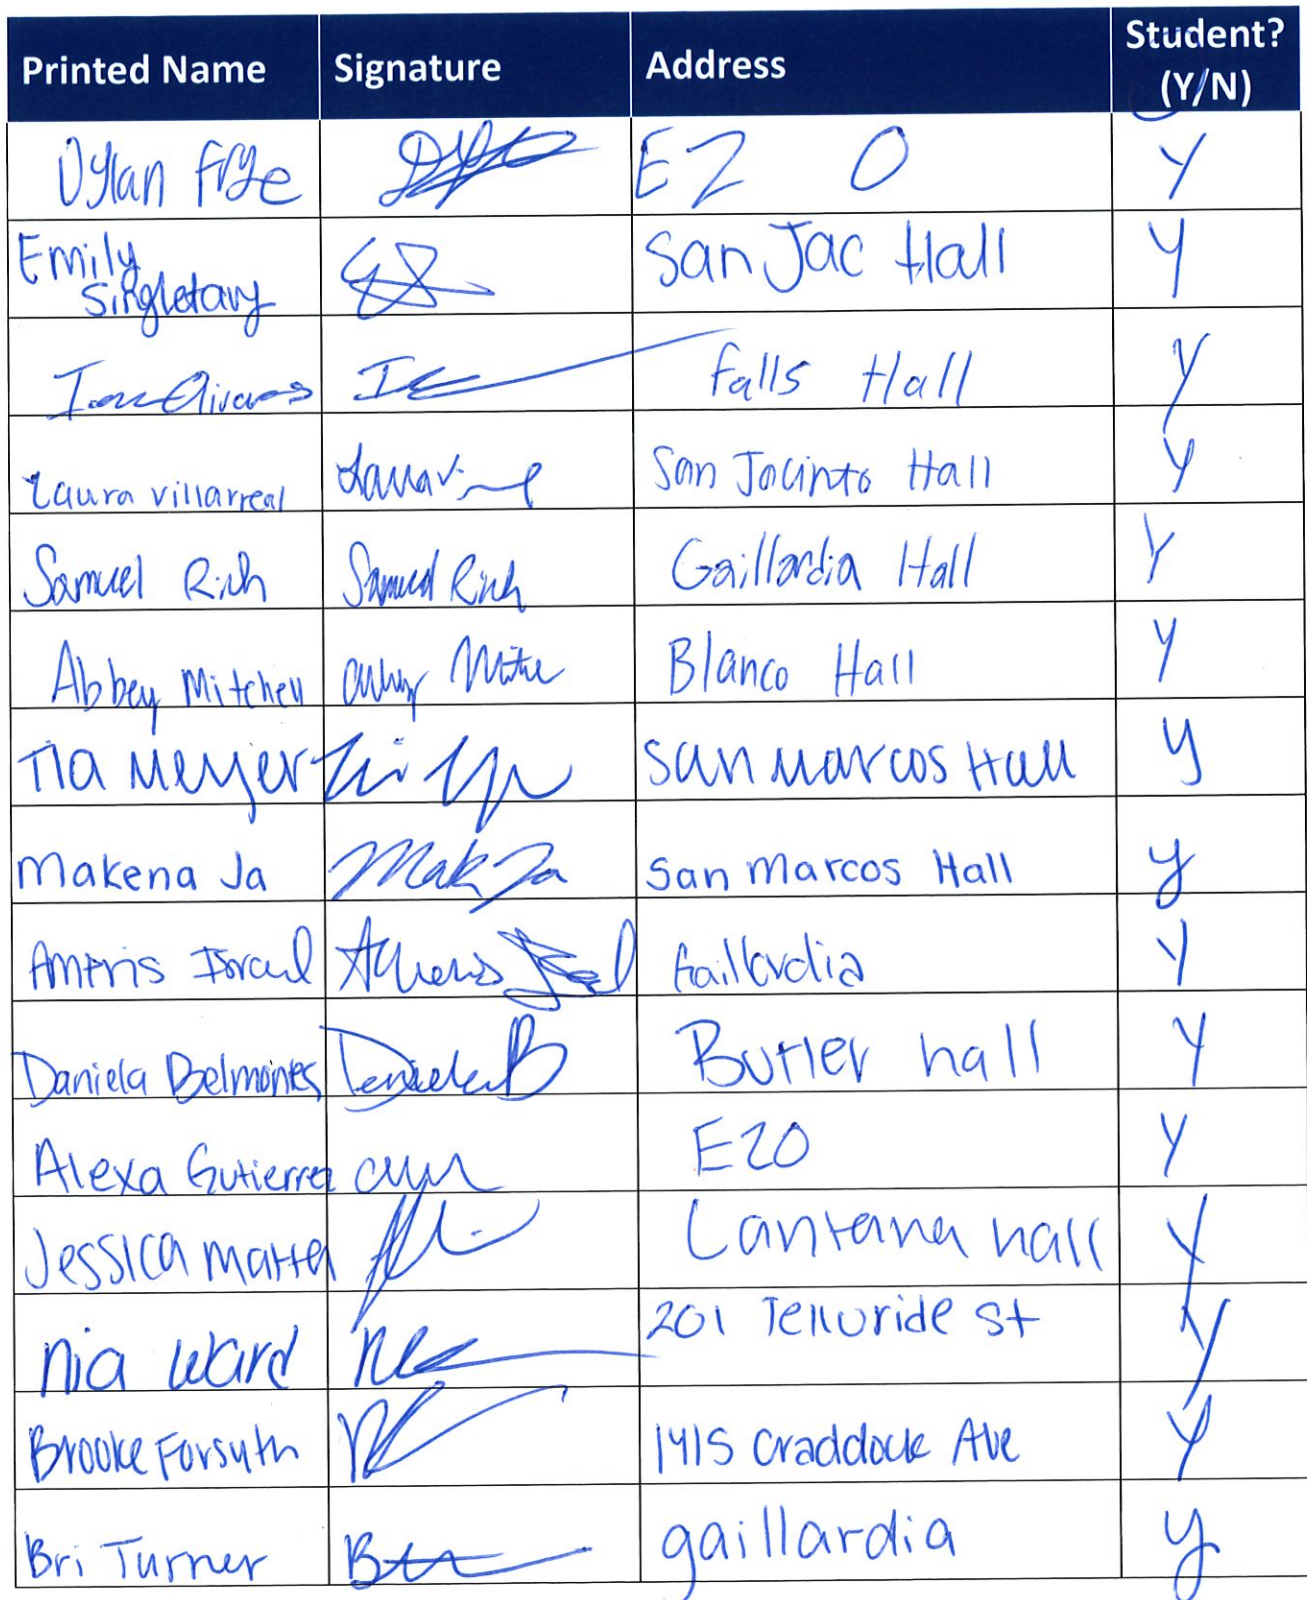 Printed Name Signature Address Student? (Y/N)
Dylan Frye E Z O Y
Emily Singletary San Jac Hall Y
Falls Hall Y
Laura Villarreal San Jacinto Hall Y
Samuel Rich Samuel Rich Gaillardia Hall Y
Abbey Mitchell Blanco Hall Y
Tia Meyer San Marcos Hall y
Makena Ja Mak Ja San Marcos Hall y
Israel Gaillardia Y
Daniela Belmontes Daniela B Butler hall Y
Alexa Gutierrez EZO Y
Jessica Lantana hall Y
nia ward 201 Telluride St Y
Brooke Forsyth 1415 Craddock Ave Y
Bri Turner gaillardia y